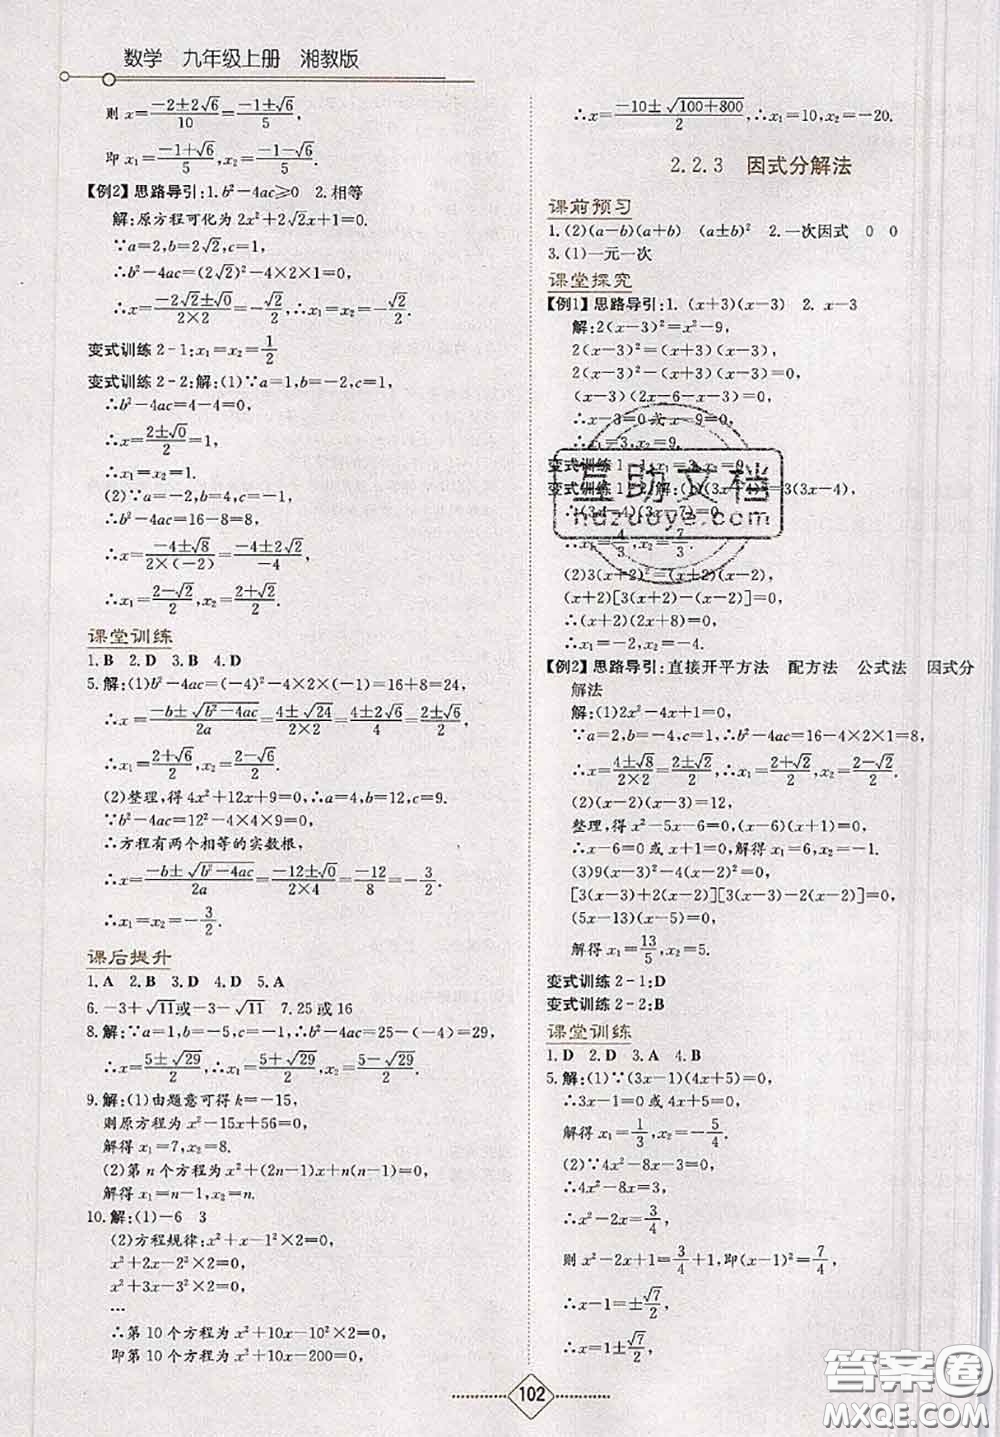 数学 九年级上册 湘教版
则 x=(-2±2√6)/10=(-1±√6)/5,
即 x₁=(-1+√6)/5,x₂=(-1-√6)/5.
【例2】思路导引:1.b²-4ac≥0 2.相等
解:原方程可化为 2x²+2√2x+1=0,
∵a=2,b=2√2,c=1,
∴b²-4ac=(2√2)²-4×2×1=0,
∴x=(-2√2±√0)/(2×2)=-√2/2,∴x₁=x₂=-√2/2.
变式训练 2-1:x₁=x₂=1/2
变式训练 2-2:解:(1)∵a=1,b=-2,c=1,
∴b²-4ac=4-4=0,
∴x=(2±√0)/2=1,
∴x₁=x₂=1.
(2)∵a=-2,b=4,c=-1,
∴b²-4ac=16-8=8,
∴x=(-4±√8)/(2×(-2))=(-4±2√2)/-4,
∴x₁=(2-√2)/2,x₂=(2+√2)/2.
课堂训练
1.B 2.D 3.B 4.D
5.解:(1)b²-4ac=(-4)²-4×2×(-1)=16+8=24,
∴x=(-b±√(b²-4ac))/2a=(4±√24)/(2×2)=(4±2√6)/4=(2±√6)/2,
∴x₁=(2+√6)/2,x₂=(2-√6)/2.
(2)整理,得 4x²+12x+9=0,∴a=4,b=12,c=9.
∵b²-4ac=12²-4×4×9=0,
∴方程有两个相等的实数根,
∴x=(-b±√(b²-4ac))/2a=(-12±√0)/(2×4)=-12/8=-3/2,
∴x₁=x₂=-3/2.
课后提升
1.A 2.B 3.D 4.D 5.A
6.-3+√11或-3-√11 7.25 或 16
8.解:∵a=1,b=-5,c=-1,∴b²-4ac=25-(-4)=29,
∴x=(5±√29)/2,∴x₁=(5+√29)/2,x₂=(5-√29)/2.
9.解:(1)由题意可得 k=-15,
则原方程为 x²-15x+56=0,
解得 x₁=7,x₂=8.
(2)第 n 个方程为 x²+(2n-1)x+n(n-1)=0,
解得 x₁=n-1,x₂=n.
10.解:(1)-6 3
(2)方程规律:x²+x-1²×2=0,
x²+2x-2²×2=0,
x²+3x-3²×2=0,
…
∴第 10 个方程为 x²+10x-10²×2=0,
即第 10 个方程为 x²+10x-200=0,
∴x=(-10±√(100+800))/2,∴x₁=10,x₂=-20.
2.2.3 因式分解法
课前预习
1.(2)(a-b)(a+b) (a±b)² 2.一次因式 0 0
3.(1)一元一次
课堂探究
【例1】思路导引:1. (x+3)(x-3) 2. x-3
解:2(x-3)²=x²-9,
2(x-3)²=(x+3)(x-3),
2(x-3)²-(x+3)(x-3)=0,
(x-3)(2x-6-x-3)=0,
∴x-3=0 或 x-9=0,
∴x₁=3,x₂=9.
变式训练 1-1:x₁=3,x₂=9
变式训练 1-2:解:(1)x(3x-4)=3(3x-4),
∴(3x-4)(3x-7)=0,
∴x₁=4/3,x₂=7/3.
(2)3(x+2)²=(x+2)(x-2),
(x+2)[3(x+2)-(x-2)]=0,
∴(x+2)(2x+8)=0,
∴x₁=-2,x₂=-4.
【例2】思路导引:直接开平方法 配方法 公式法 因式分
解法
解:(1)2x²-4x+1=0,
∵a=2,b=-4,c=1,∴b²-4ac=16-4×2×1=8,
∴x=(4±√8)/(2×2)=(2±√2)/2,∴x₁=(2+√2)/2,x₂=(2-√2)/2.
(2)(x-2)(x-3)=12,
整理,得 x²-5x-6=0,(x-6)(x+1)=0,
∴x-6=0 或 x+1=0,解得 x₁=6,x₂=-1.
(3)9(x-3)²-4(x-2)²=0,
[3(x-3)+2(x-2)][3(x-3)-2(x-2)]=0,
(5x-13)(x-5)=0,
解得 x₁=13/5,x₂=5.
变式训练 2-1:D
变式训练 2-2:B
课堂训练
1.D 2.D 3.A 4.B
5.解:(1)∵(3x-1)(4x+5)=0,
∴3x-1=0 或 4x+5=0,
解得 x₁=1/3,x₂=-5/4.
(2)∵4x²-8x-3=0,
∴4x²-8x=3,
∴x²-2x=3/4,
则 x²-2x+1=3/4+1,即(x-1)²=7/4,
∴x-1=±√7/2,
∴x=1±√7/2,
102
互助文档
hdzuoye.com
答案圈
MXQE.COM